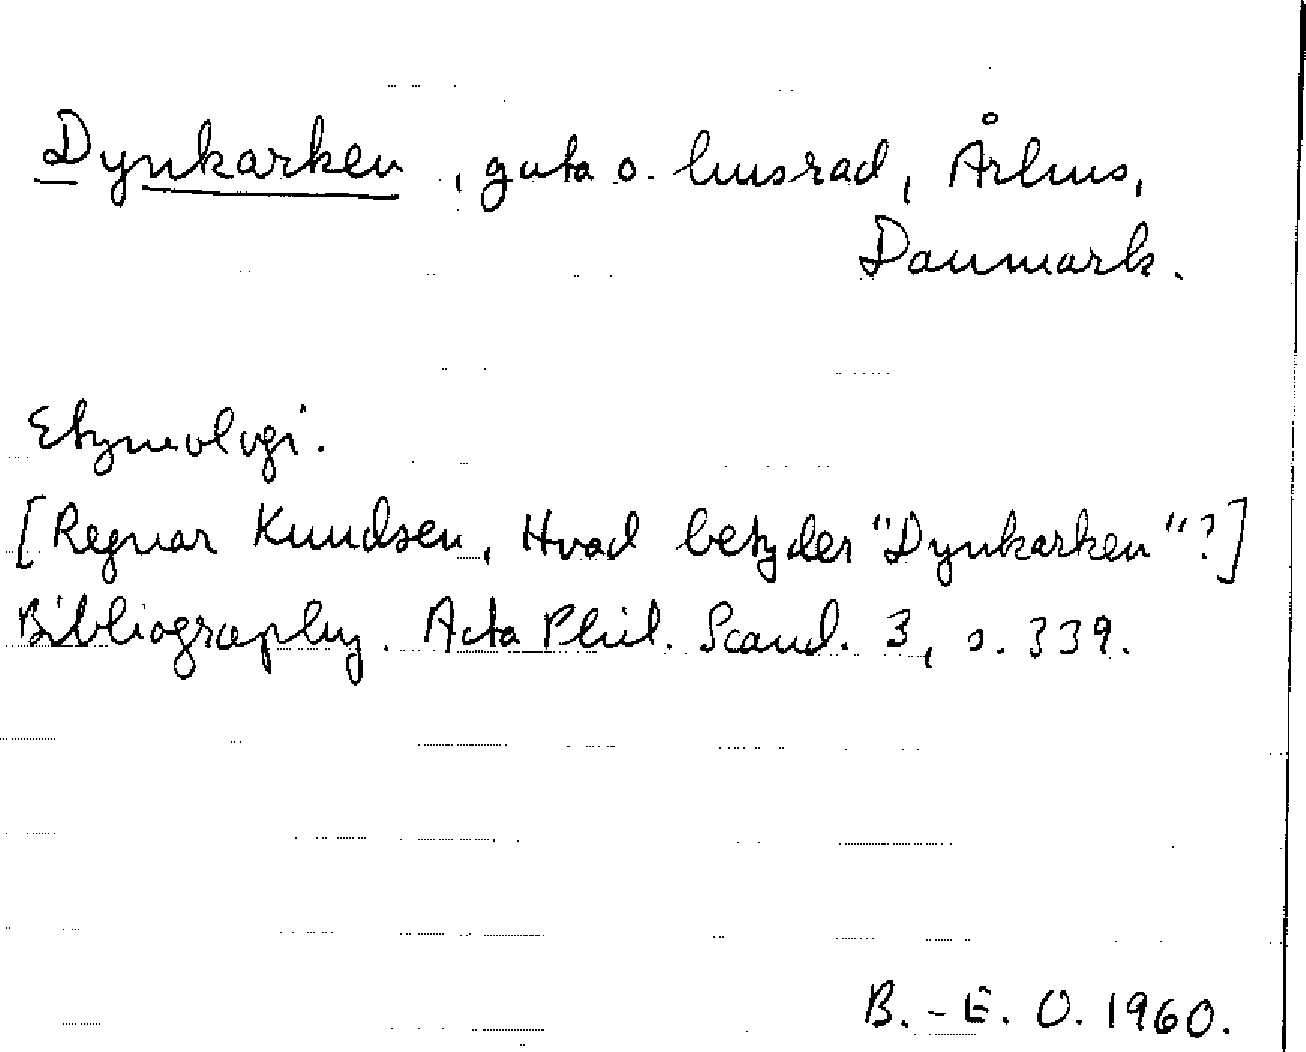 Dynkarken, gata o. husrad, Århus,
Danmark.
Etymologi.
[Regnar Knudsen, Hvad betyder "Dynkarken"?]
Bibliography. Acta Phil. Scand. 3, s. 339.
B.-E. O. 1960.